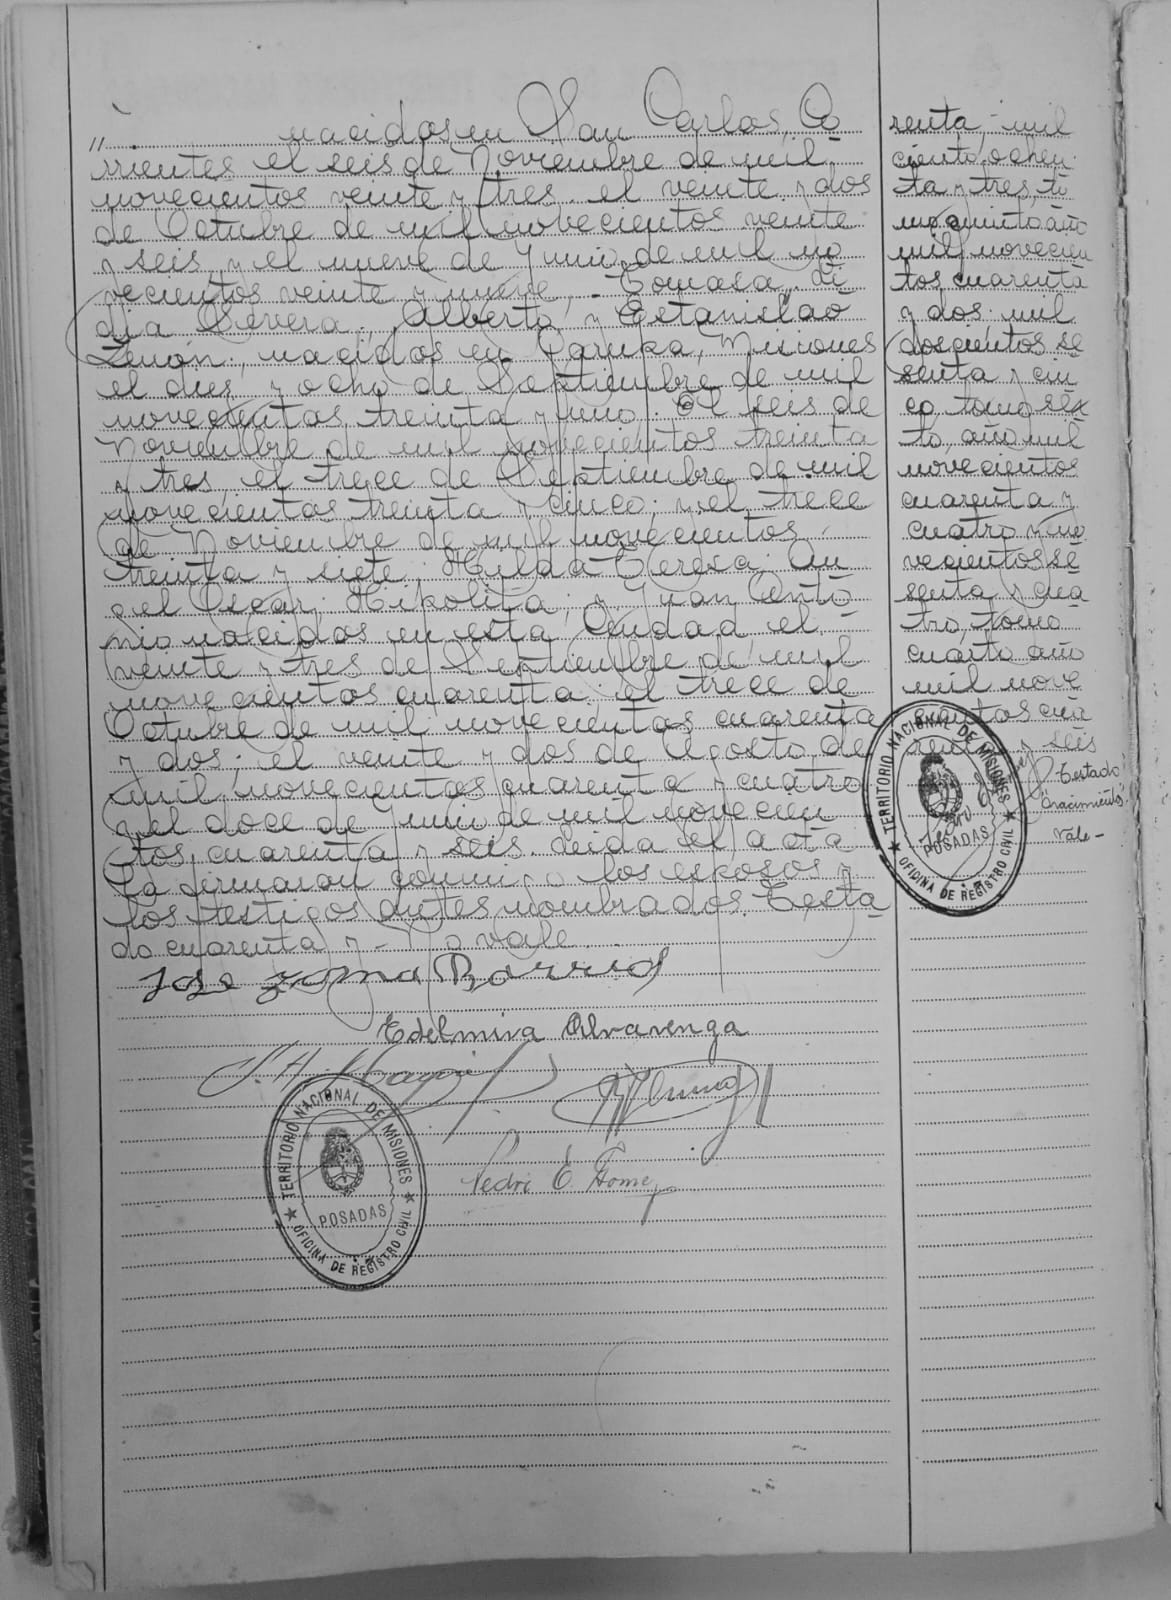 " nacidos en San Carlos, Co
rrientes el seis de Noviembre de mil
novecientos veinte y tres. el veinte y dos
de Octubre de mil novecientos veinte
y seis y el nueve de Junio de mil no
vecientos veinte y nueve; Tomasa, Li
dia Severa; Alberto y Estanislao
Zenón; nacidos en Garupa, Misiones
el dies y ocho de Septiembre de mil
novecientos treinta y uno. El seis de
Noviembre de mil novecientos treinta
y tres, el trece de Septiembre de mil
novecientos treinta y cinco; y el trece
de Noviembre de mil novecientos
treinta y siete; Hilda Teresa;
Oscar; Hipolita; y Juan Anto
nio nacidos en esta Ciudad el
veinte y tres de Septiembre de mil
novecientos cuarenta: el trece de
Octubre de mil novecientos cuarenta
y dos; el veinte y dos de Agosto de
mil novecientos cuarenta y cuatro
y el doce de Junio de mil novecien
tos cuarenta y seis. Leida el acta
la firmaron conmigo los esposos y
los testigos antes nombrados. Testa
do cuarenta y - No vale.
Jose Barrios
Edelmira Alvarenga
Pedro E. Gomez
TERRITORIO NACIONAL DE MISIONES
POSADAS
OFICINA DE REGISTRO CIVIL
renta; mil
ciento ochen
ta y tres, to
mo quinto año
mil novecien
tos cuarenta
y dos; mil
doscientos se
senta y cin
co, tomo sex
to, año mil
novecientos
cuarenta y
cuatro y no
vecientos se
senta y cua
tro, tomo
cuarto año
mil nove
cientos cua
renta y seis
Testado
"nacimientos"
vale-
TERRITORIO NACIONAL DE MISIONES
POSADAS
OFICINA DE REGISTRO CIVIL